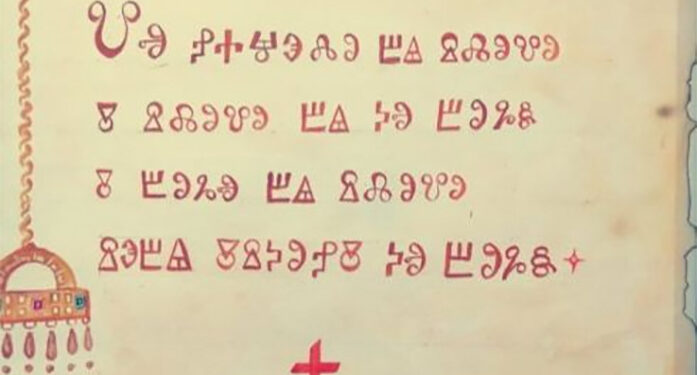 Ⰲⱏ ⱀⰰⱍⰵⰾⱁ ⰱⱑ ⱄⰾⱁⰲⱁ
ⰻ ⱄⰾⱁⰲⱁ ⰱⱑ ⰽⱏ ⰱⱁⰳⱆ
ⰻ ⰱⱁⰳⱏ ⰱⱑ ⱄⰾⱁⰲⱁ
ⱄⰵ ⰱⱑ ⰻⱄⰽⱁⱀⰻ ⰽⱏ ⰱⱁⰳⱆ